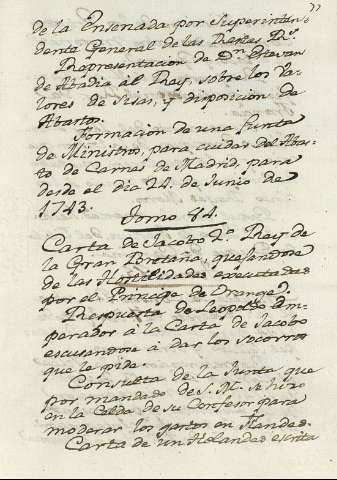 77
de la Ensenada por Superinten-
dente General de las Reales R.s
Representacion de D.n Estevan
de Abadia al Rey, sobre los Va-
lores de Sisas, y disposicion de
Abastos.
Formacion de una Junta
de Ministros, para cuidar del Abas-
to de Carnes de Madrid, para
desde el dia 24. de Junio de
1743.
Tomo 84.
Carta de Jacobo 2.o Rey de
la Gran Bretaña, quejandose
de las Hostilidades executadas
por el Principe de Orange.
Respuesta de Leopoldo Em-
perador à la Carta de Jacobo
escusandose à dar los socorros
que le pide.
Consulta de la Junta que
por mandado de S. M. se hizo
en la Celda de su Confesor para
moderar los gastos en Flandes.
Carta de un Holandes escrita